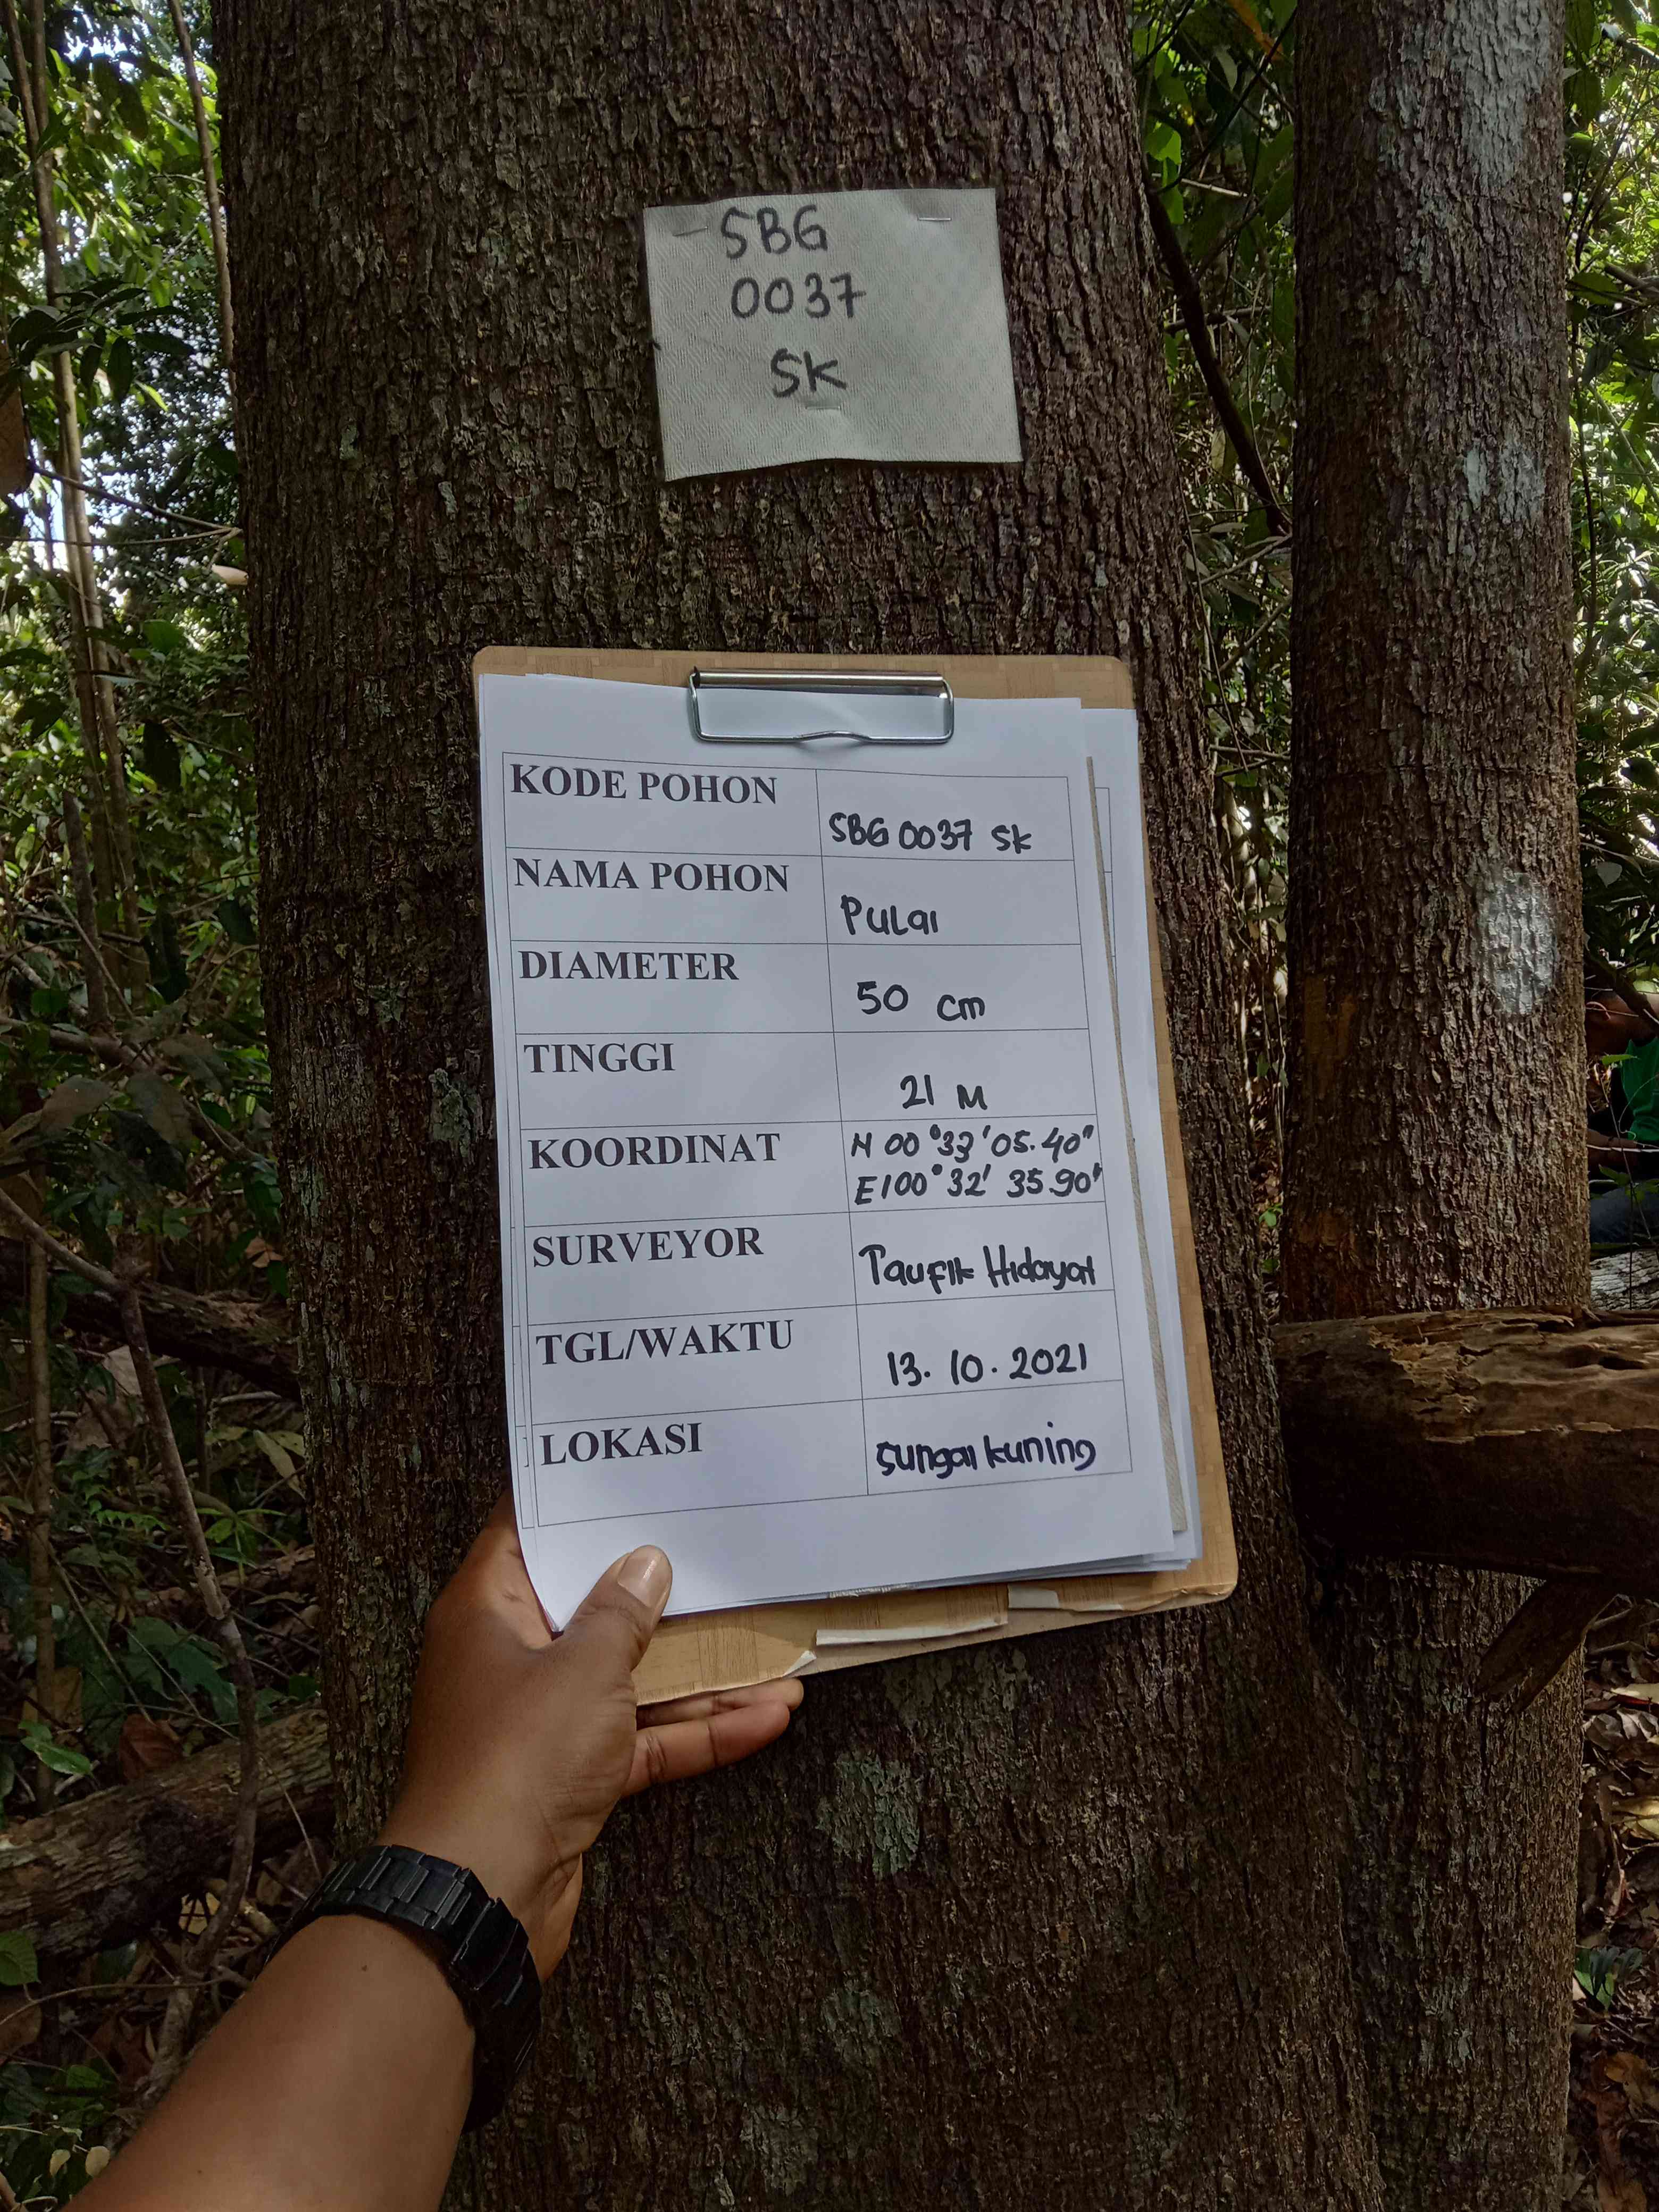 SBG
0037
SK
KODE POHON
SBG 0037 SK
NAMA POHON
Pulai
DIAMETER
50 cm
TINGGI
21 M
KOORDINAT
N 00°33'05.40"
E100°32' 35.90"
SURVEYOR
Taufik Hidayat
TGL/WAKTU
13. 10. 2021
LOKASI
Sungai kuning